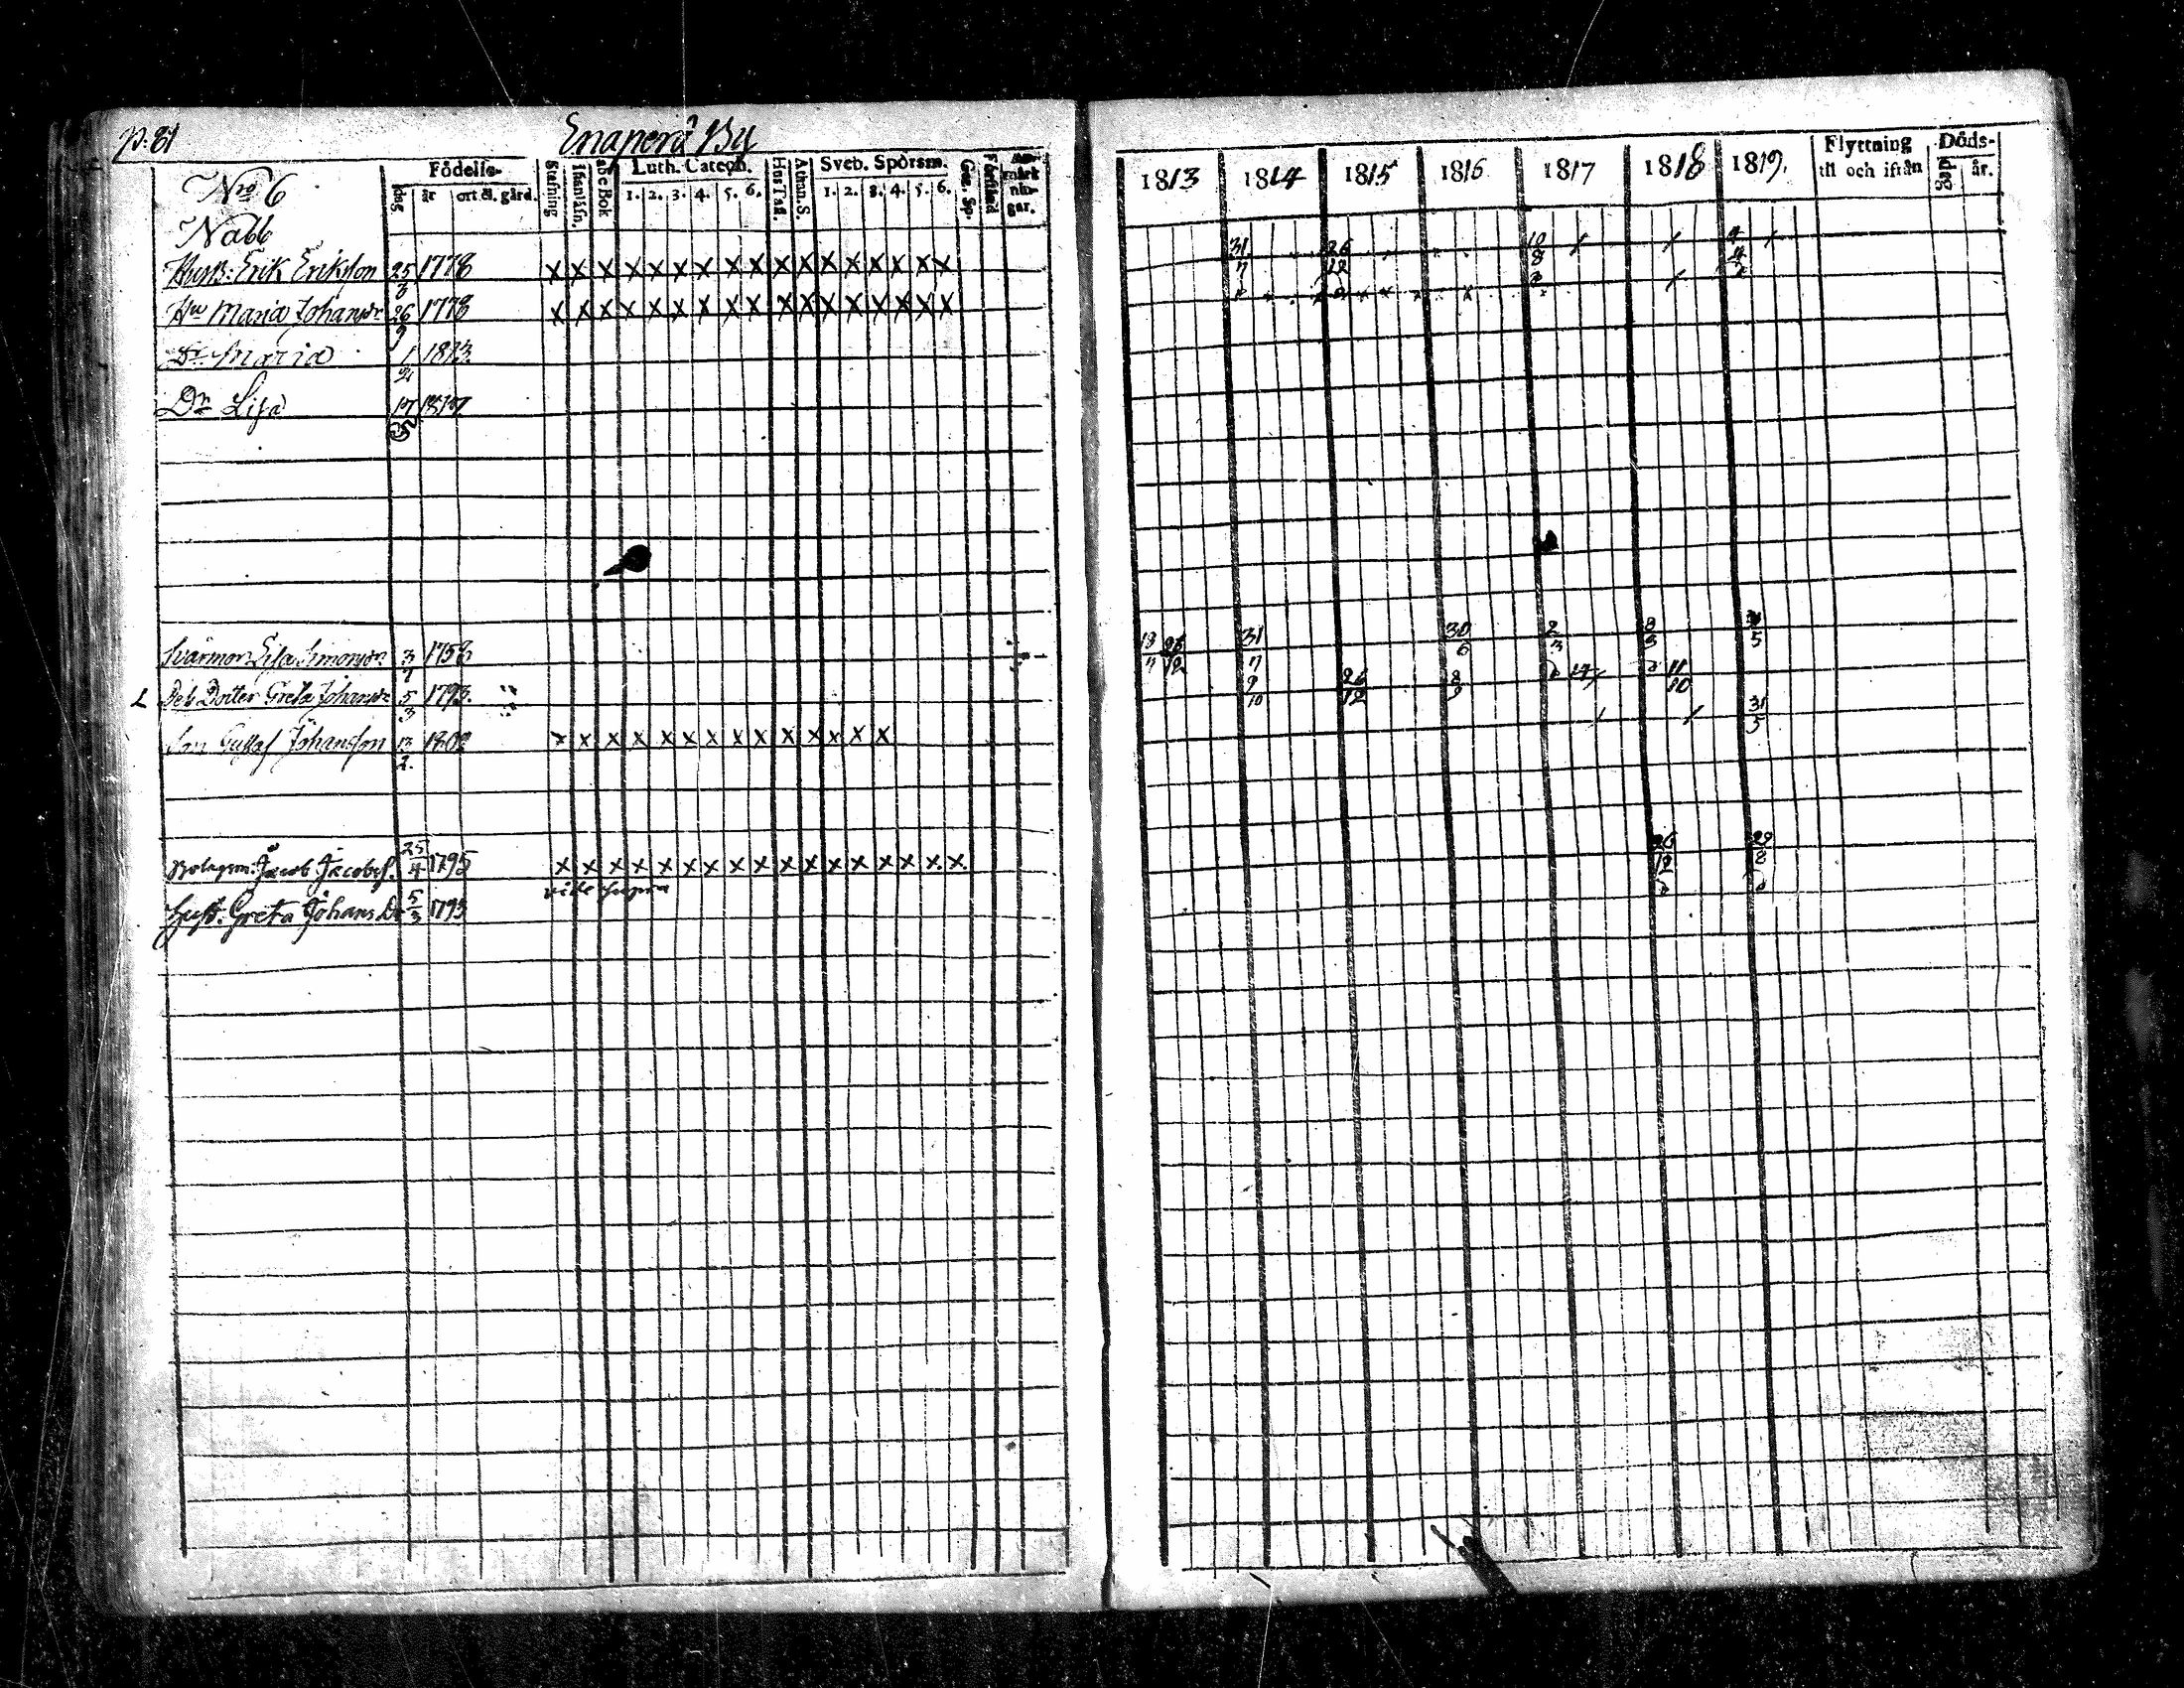 p. 81
Enaperä By
Födelse-
dag år ort el. gård.
Stafning
Innanläsn.
abc Bok
Luth. Catech.
1. 2. 3. 4. 5. 6.
Hus Tafl.
Athan. S.
Sveb. Spörsm.
1. 2. 3. 4. 5. 6.
Gez. Sp.
Förstånd
An-
märk
nin-
gar.
No 6
Nabb
Husb: Erik Erikson 25/3 1778 x x x x x x x x x x x x x x x x x
Hu Maria Johansdr 26/9 1778 x x x x x x x x x x x x x x x x x
Dr Maria 1/2 1813
Dr Lisa 17 1817
Svärmor Lisa Simonsdr 3/7 1758
L Des Dotter Greta Johansdr 5/3 1793.
Son Gustaf Johansson 13/2. 1802 x x x x x x x x x x x x x x
Bolagsm: Jacob Jacobss. 25/4 1795 x x x x x x x x x x x x x x x x x
vide supra
Hust. Greta Johans Dr 5/3 1793
1813 1814 1815 1816 1817 1818 1819.
Flyttning
till och ifrån
Döds-
dag år.
31/7 26/12 10/8
18/7 26/12 31/7 30/6 2/3 8/3
9/10 26/12 8/9 11/10
31/5
26/12 29/8